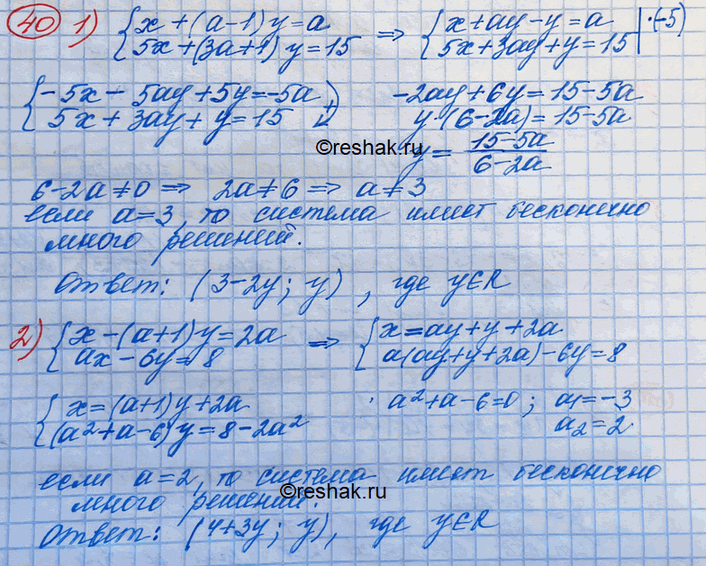 40 1) {x+(a-1)y=a 5x+(3a+1)y=15 => {x+ay-y=a 5x+3ay+y=15 |·(-5)
{-5x-5ay+5y=-5a 5x+3ay+y=15 + -2ay+6y=15-5a
y(6-2a)=15-5a
©reshak.ru y=(15-5a)/(6-2a)
6-2a≠0 => 2a≠6 => a≠3
если a=3, то система имеет бесконечно
много решений.
Ответ: (3-2y; y), где y∈R
2) {x-(a+1)y=2a ax-6y=8 => {x=ay+y+2a a(ay+y+2a)-6y=8
{x=(a+1)y+2a (a²+a-6)y=8-2a² a²+a-6=0; a₁=-3
a₂=2
если a=2, то система имеет бесконечно
много решений.
©reshak.ru
Ответ: (4+3y; y), где y∈R